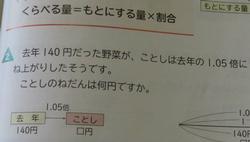 くらべる量＝もとにする量×割合
もとにする量
2
去年140円だった野菜が、ことしは去年の1.05倍に
ね上がりしたそうです。
ことしのねだんは何円ですか。
1.05倍
去年
ことし
140円
□円
1.0
1
140